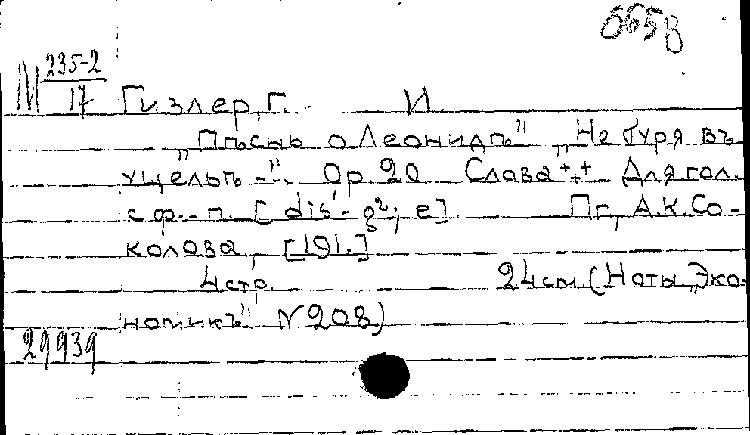 665в
М 235-2
17 Гизлер, Г. И
„Пѣснь о Леонидѣ" „Не буря въ
ущельѣ -". Op. 20 Слова *** Для гол.
с ф.-п. [dis'- g²; e]. Пг, А.К.Со-
колова, [191.]
4 стр. 24 см (Ноты „Эко-
номикъ" N 208)
29939